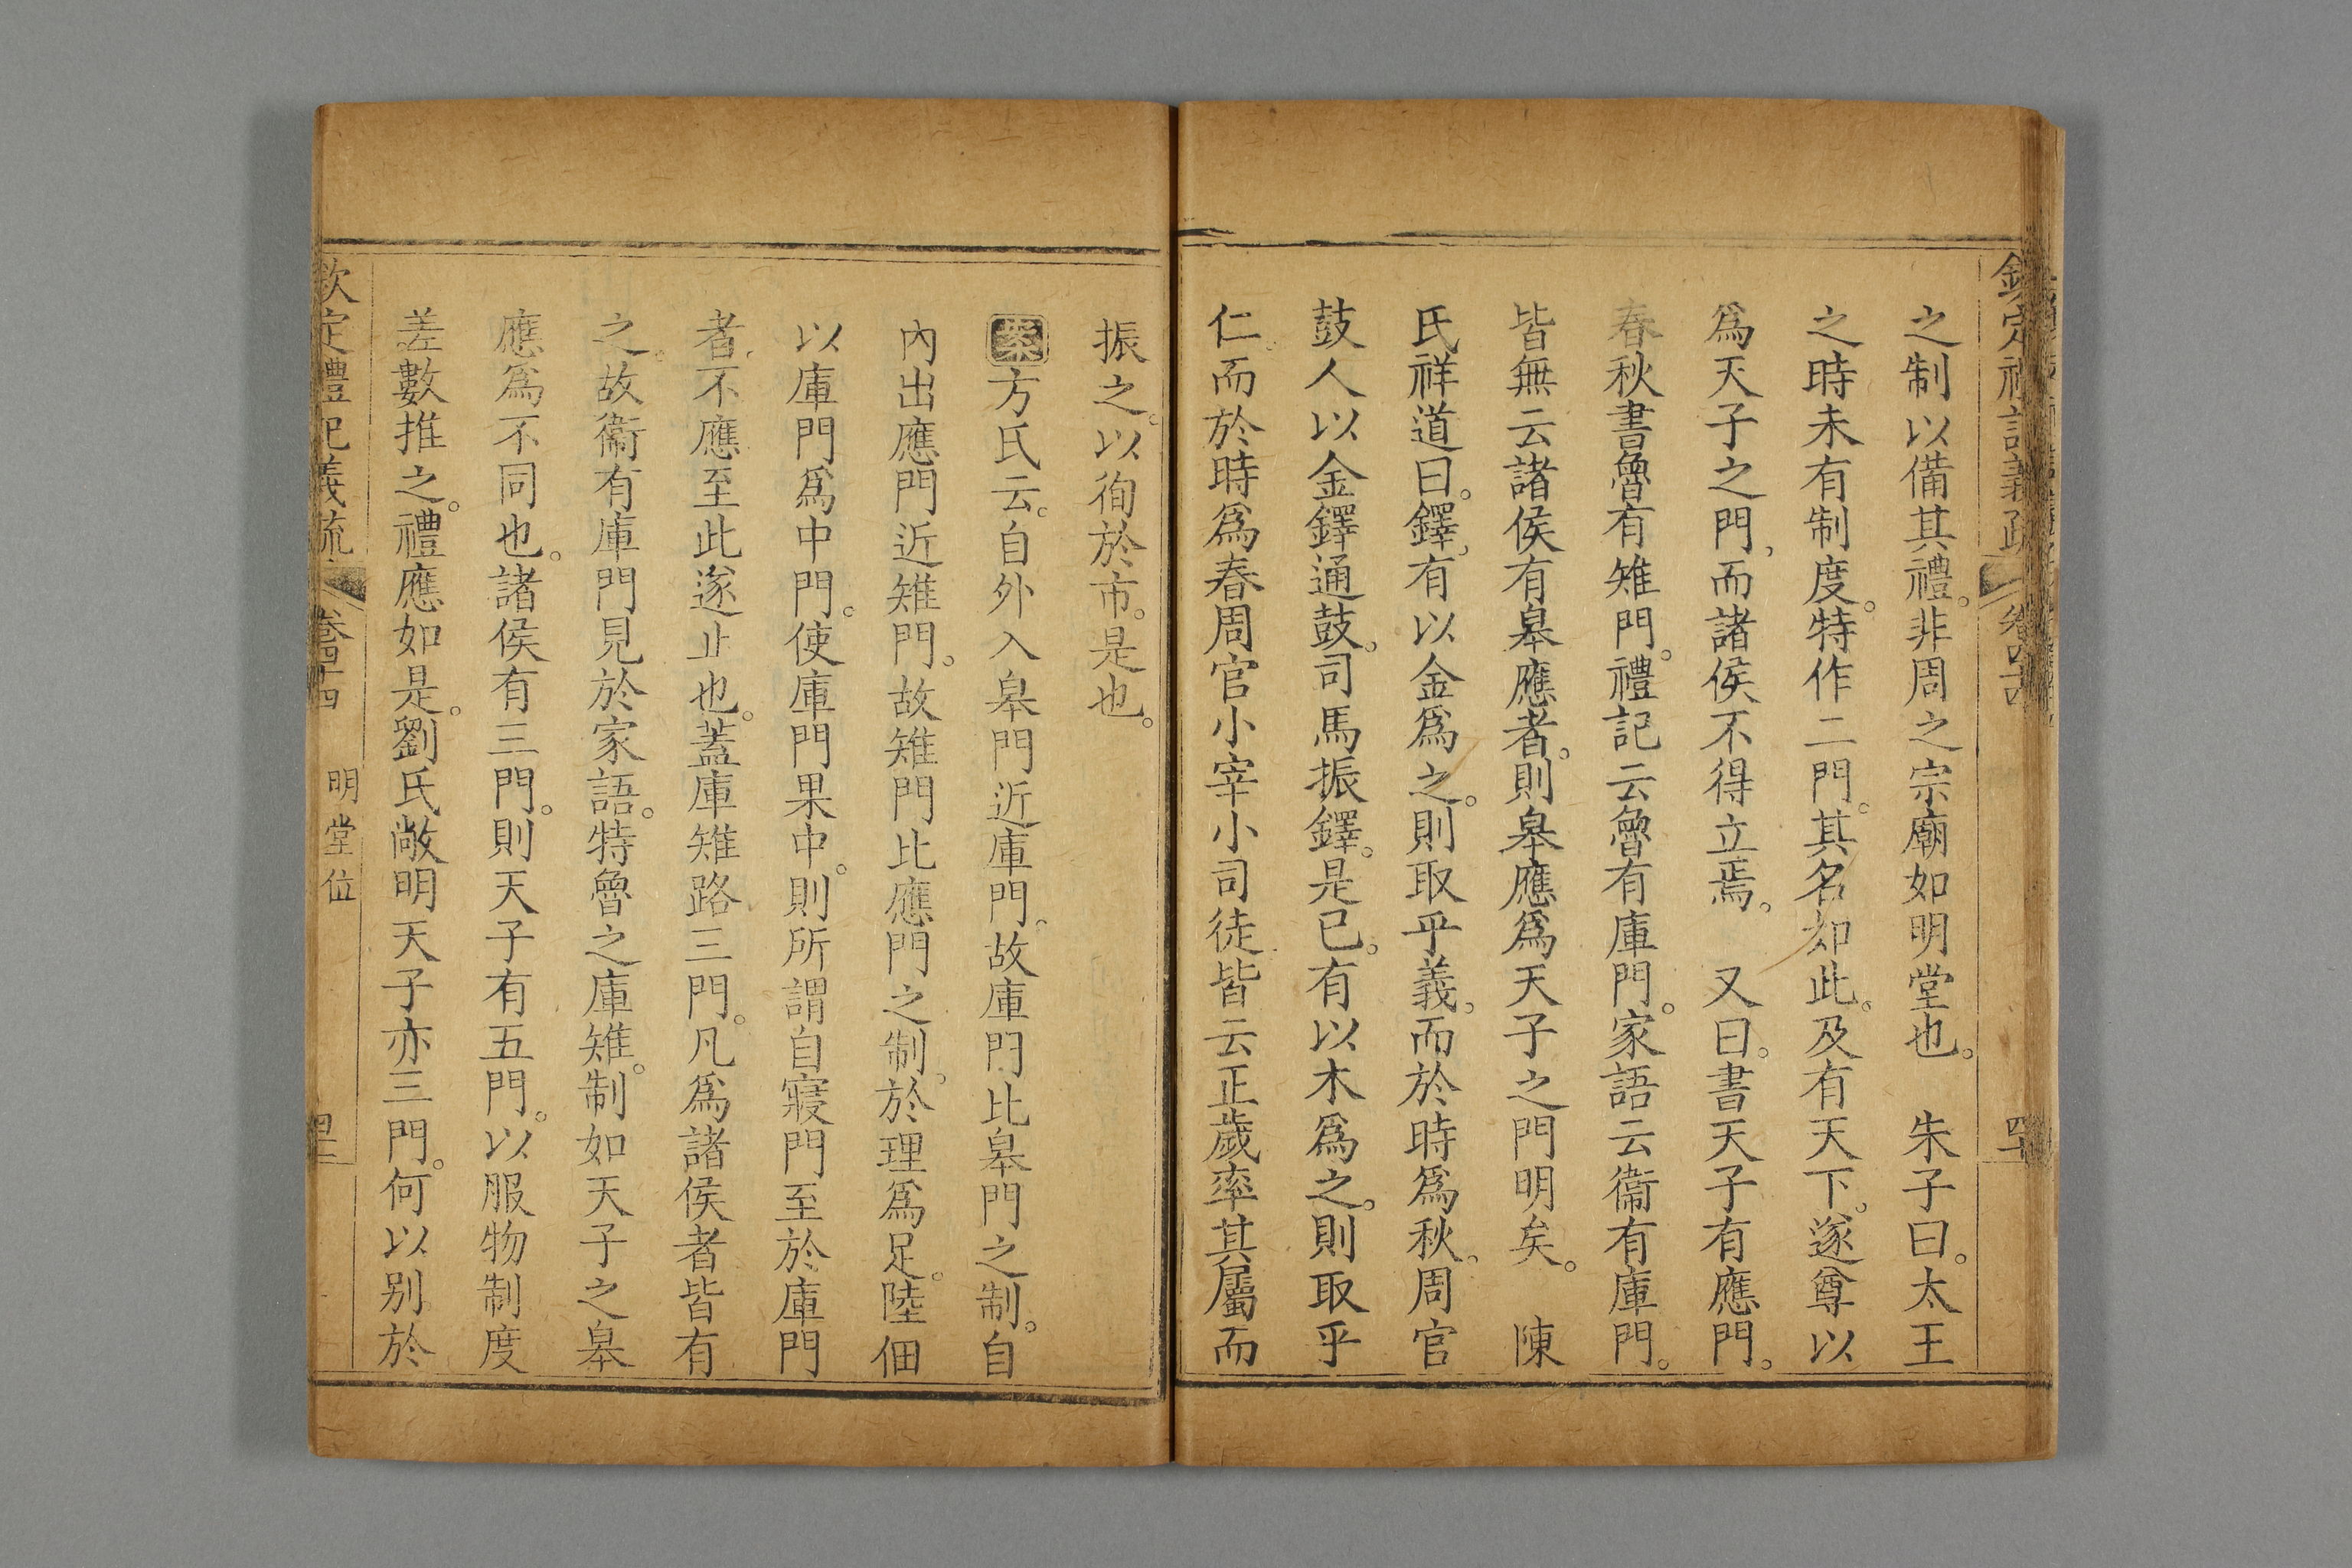 之制以備其禮。非周之宗廟如明堂也。　朱子曰。太王
之時未有制度。特作二門。其名如此。及有天下。遂尊以
爲天子之門，而諸侯不得立焉。　又曰。書天子有應門。
春秋書魯有雉門。禮記云魯有庫門。家語云衞有庫門。
皆無云諸侯有皋應者。則皋應爲天子之門明矣。　陳
氏祥道曰。鐸，有以金爲之。則取乎義，而於時爲秋。周官
鼓人以金鐸通鼓。司馬振鐸。是已。有以木爲之。則取乎
仁。而於時爲春。周官小宰小司徒皆云正歲率其屬而
振之。以徇於市。是也。
案方氏云。自外入皋門近庫門。故庫門比皋門之制。自
內出應門近雉門。故雉門比應門之制。於理爲足。陸佃
以庫門爲中門。使庫門果中。則所謂自寢門至於庫門
者，不應至此遂止也。蓋庫雉路三門。凡爲諸侯者皆有
之。故衞有庫門見於家語。特魯之庫雉。制如天子之皋
應爲不同也。諸侯有三門。則天子有五門。以服物制度
差數推之。禮應如是。劉氏敞明天子亦三門。何以别於
欽定禮記義疏　卷四十四　明堂位